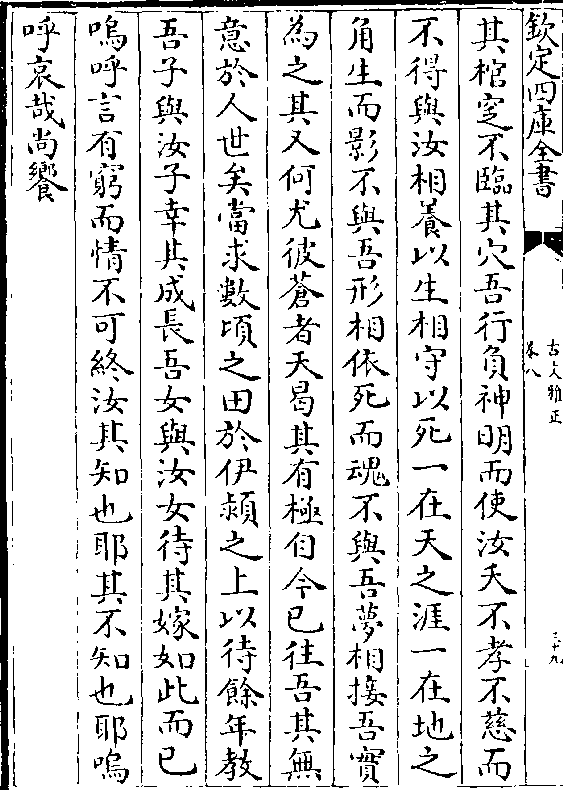 欽定四庫全書
古文雅正
卷八
三十九
其棺窆不臨其穴吾行負神明而使汝夭不孝不慈而
不得與汝相養以生相守以死一在天之涯一在地之
角生而影不與吾形相依死而魂不與吾夢相接吾實
為之其又何尤彼蒼者天曷其有極自今已往吾其無
意於人世矣當求數頃之田於伊潁之上以待餘年教
吾子與汝子幸其成長吾女與汝女待其嫁如此而已
嗚呼言有窮而情不可終汝其知也耶其不知也耶嗚
呼哀哉尚饗